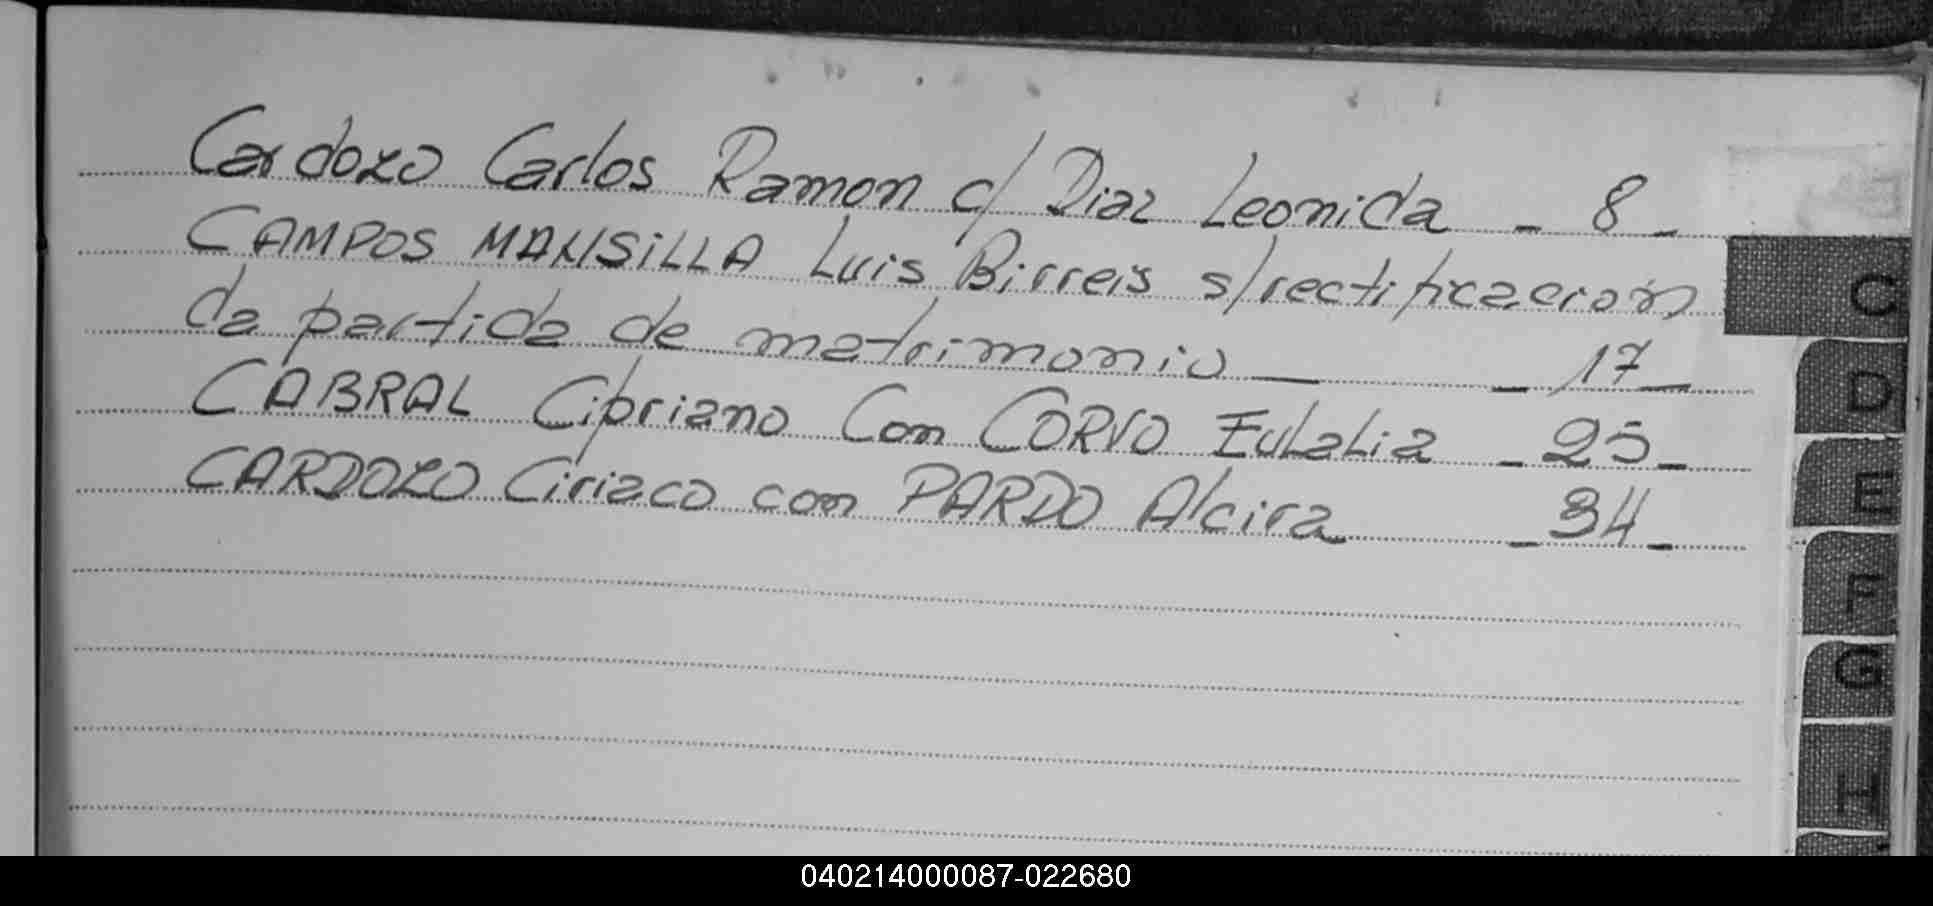 Cardozo Carlos Ramon c/ Diaz Leonida _ 8 _
CAMPOS MANSiLLA Luis Birreis s/rectificacion
da partida de matrimonio _ _ 17 _
CABRAL Cipriano Con CORVO EULaLia _ 25 _
CARDOZO Ciriaco con PARDO Alcira _ 34 _
C
D
E
F
G
H
040214000087-022680